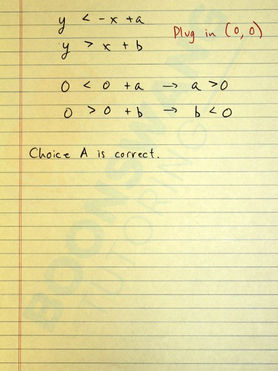 y < -x + a
Plug in (0,0)
y > x + b
0 < 0 + a → a > 0
0 > 0 + b → b < 0
Choice A is correct.
BOONSWANG
TUTORING